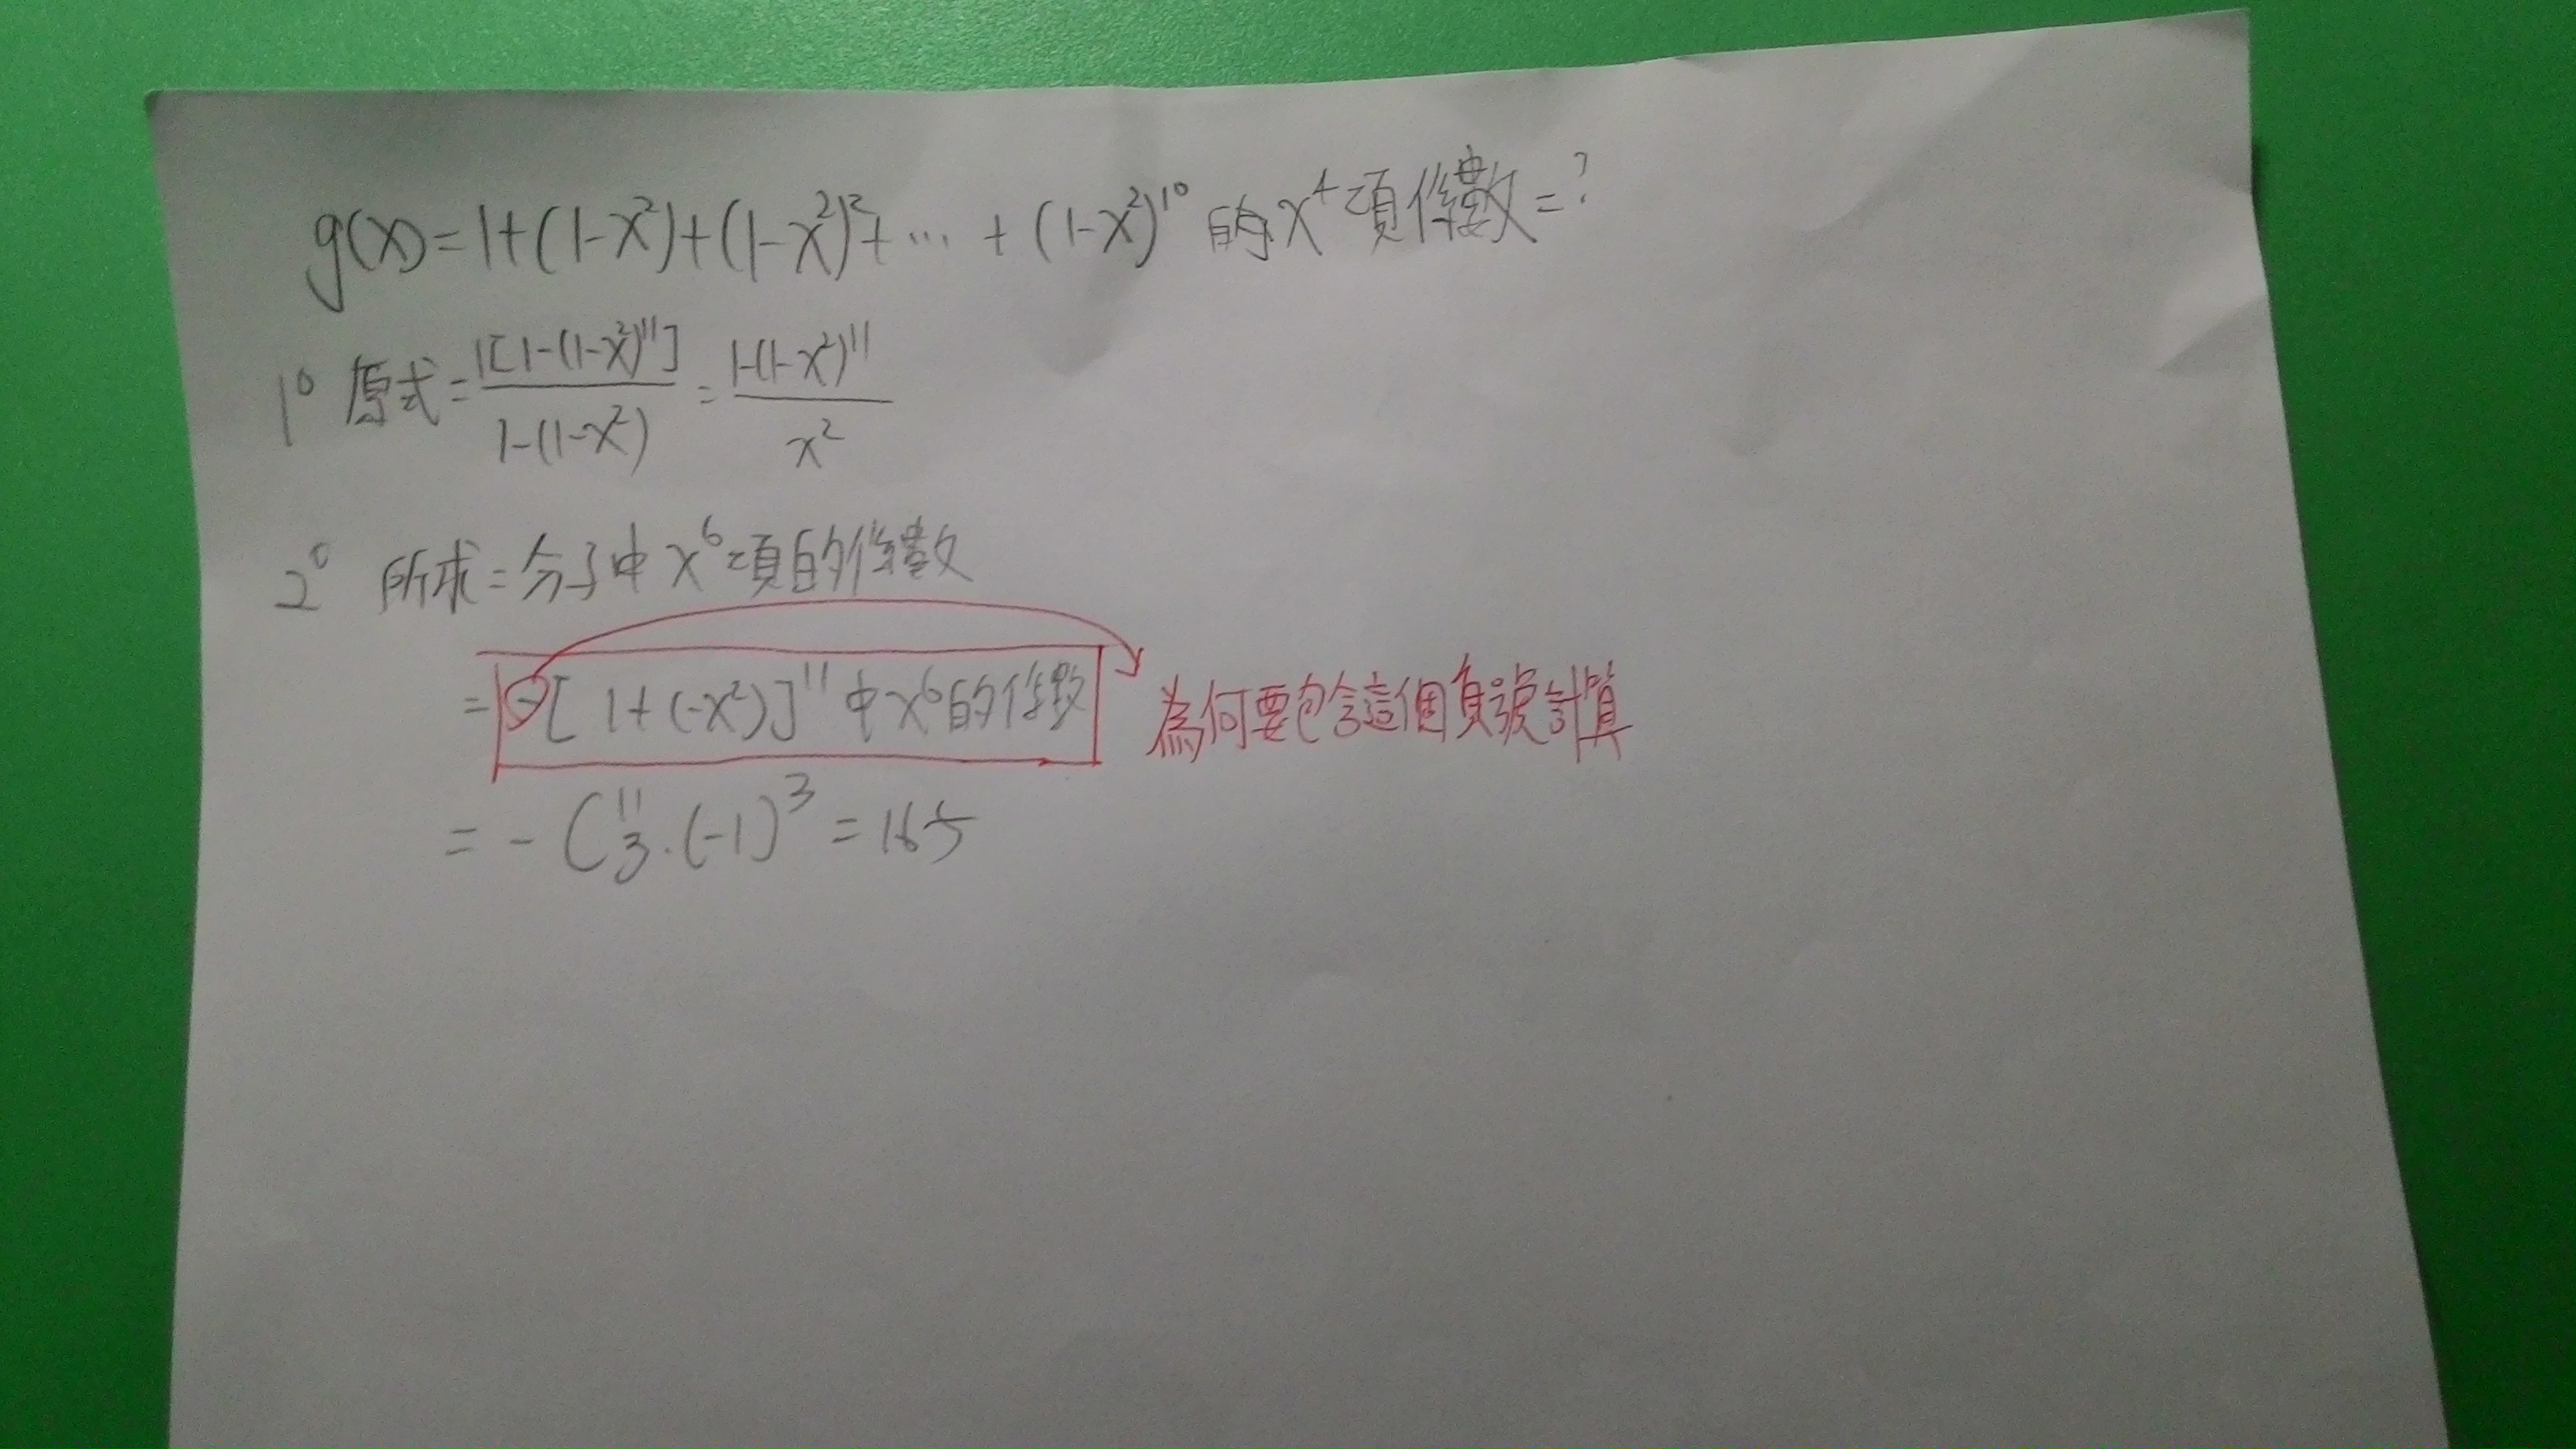 g(x)=1+(1-x²)+(1-x²)²+⋯+(1-x²)¹⁰ 的x⁴項係數=?
1° 原式=\frac{1[1-(1-x²)¹¹]}{1-(1-x²)}=\frac{1-(1-x²)¹¹}{x²}
2° 所求=分子中x⁶項的係數
=-[1+(-x²)]¹¹中x⁶的係數 為何要包含這個負號計算
=-C¹¹₃·(-1)³=165